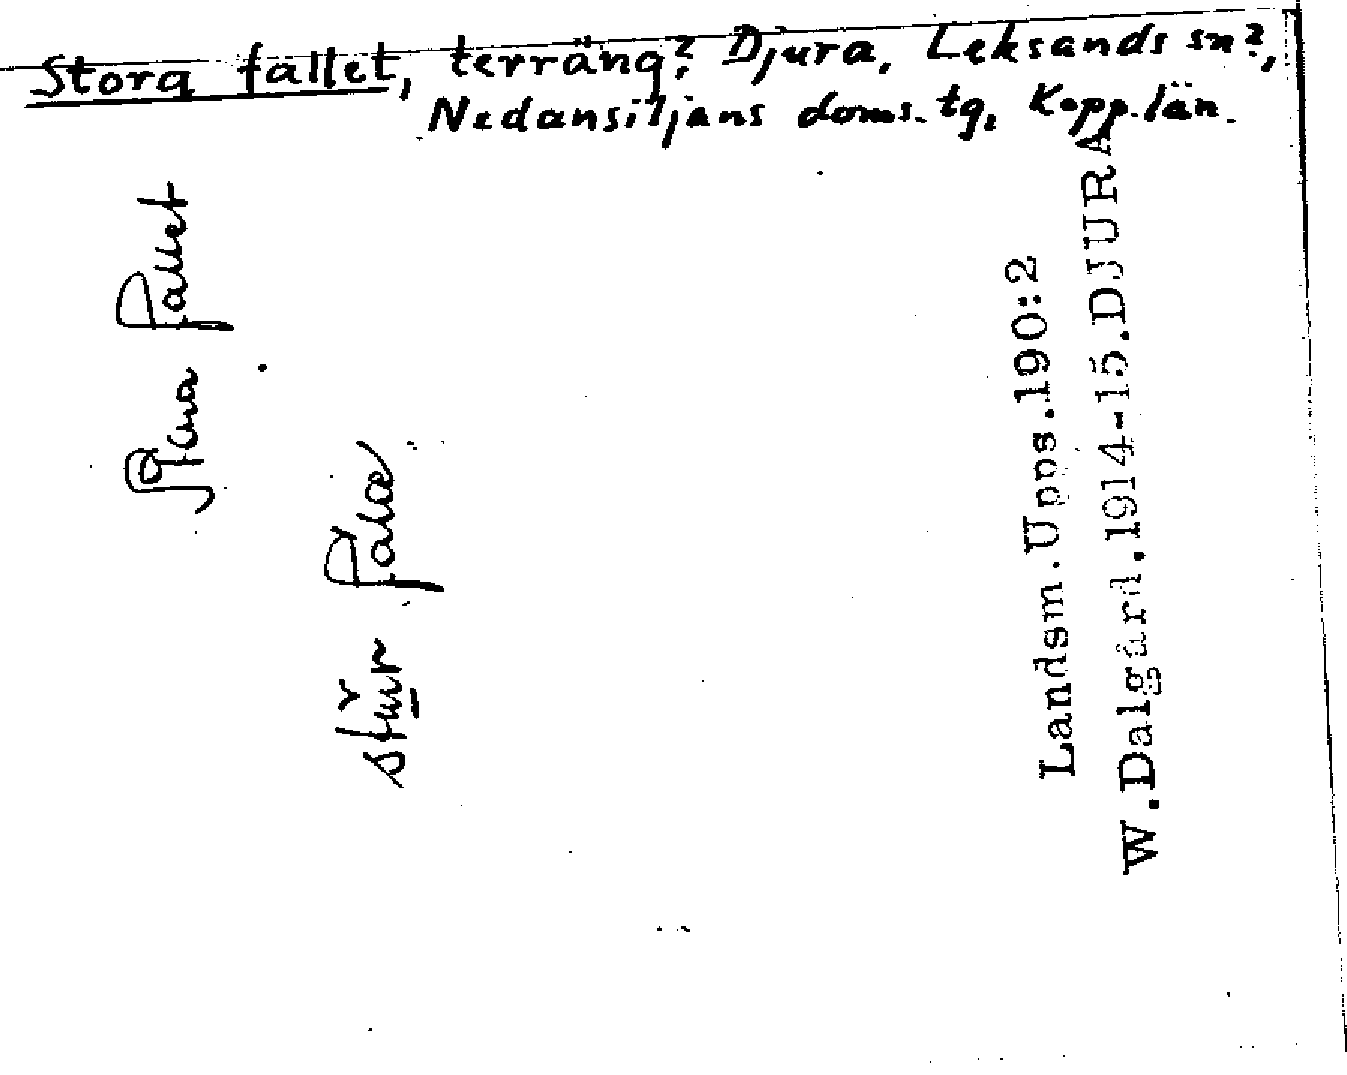 Stora fallet, terräng? Djura, Leksands sn?,
Nedansiljans doms. tg, Kopp. län.
Stora fallet
Landsm.Upps.190:2
W.Dalgård.1914-15.DJURA